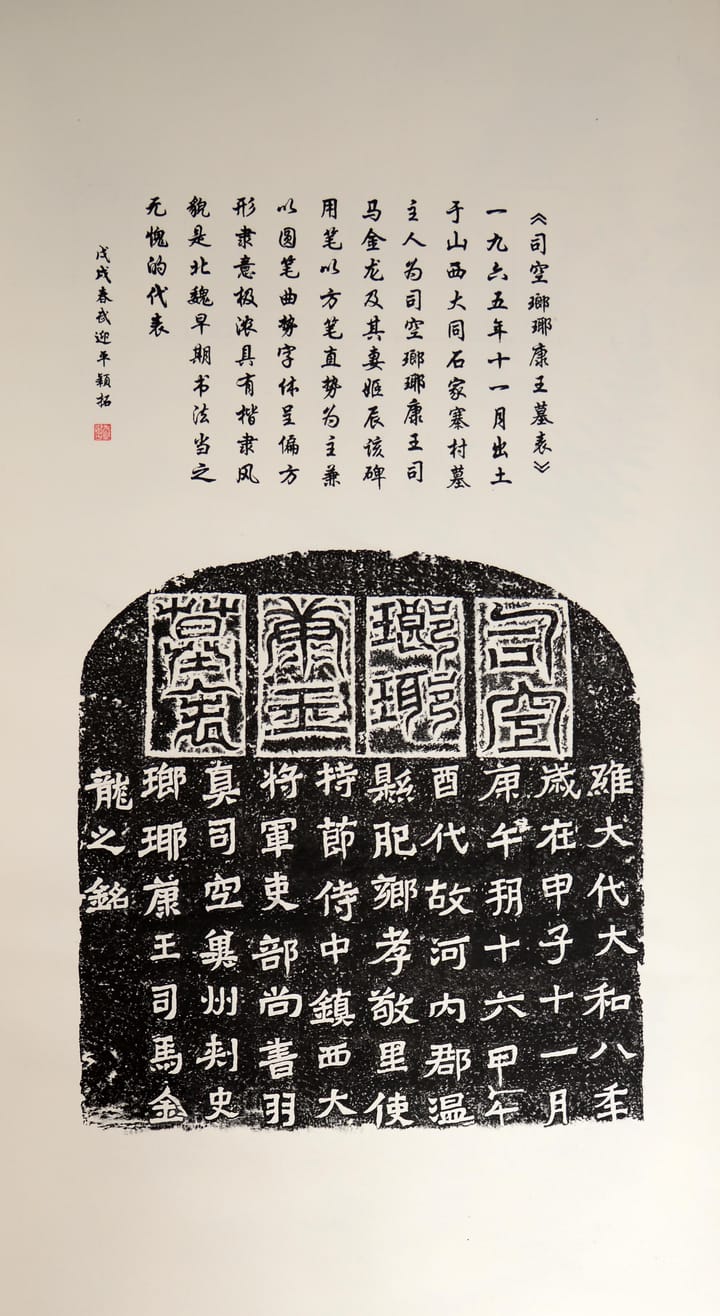 《司空瑯瑘康王墓表》
一九六五年十一月出土
于山西大同石家寨村墓
主人为司空瑯瑘康王司
马金龙及其妻姬辰该碑
用笔以方笔直势为主兼
以圆笔曲势字体呈偏方
形隶意极浓具有楷隶风
貌是北魏早期书法当之
无愧的代表
戊戌春武迎平颖拓
司空
瑯瑘
康王
墓表
維大代大和八年
歲在甲子十一月
庚午朔十六甲午
酉代故河内郡温
縣肥鄉孝敬里使
持節侍中鎮西大
將軍吏部尚書羽
真司空冀州刺史
瑯瑘康王司馬金
龍之銘